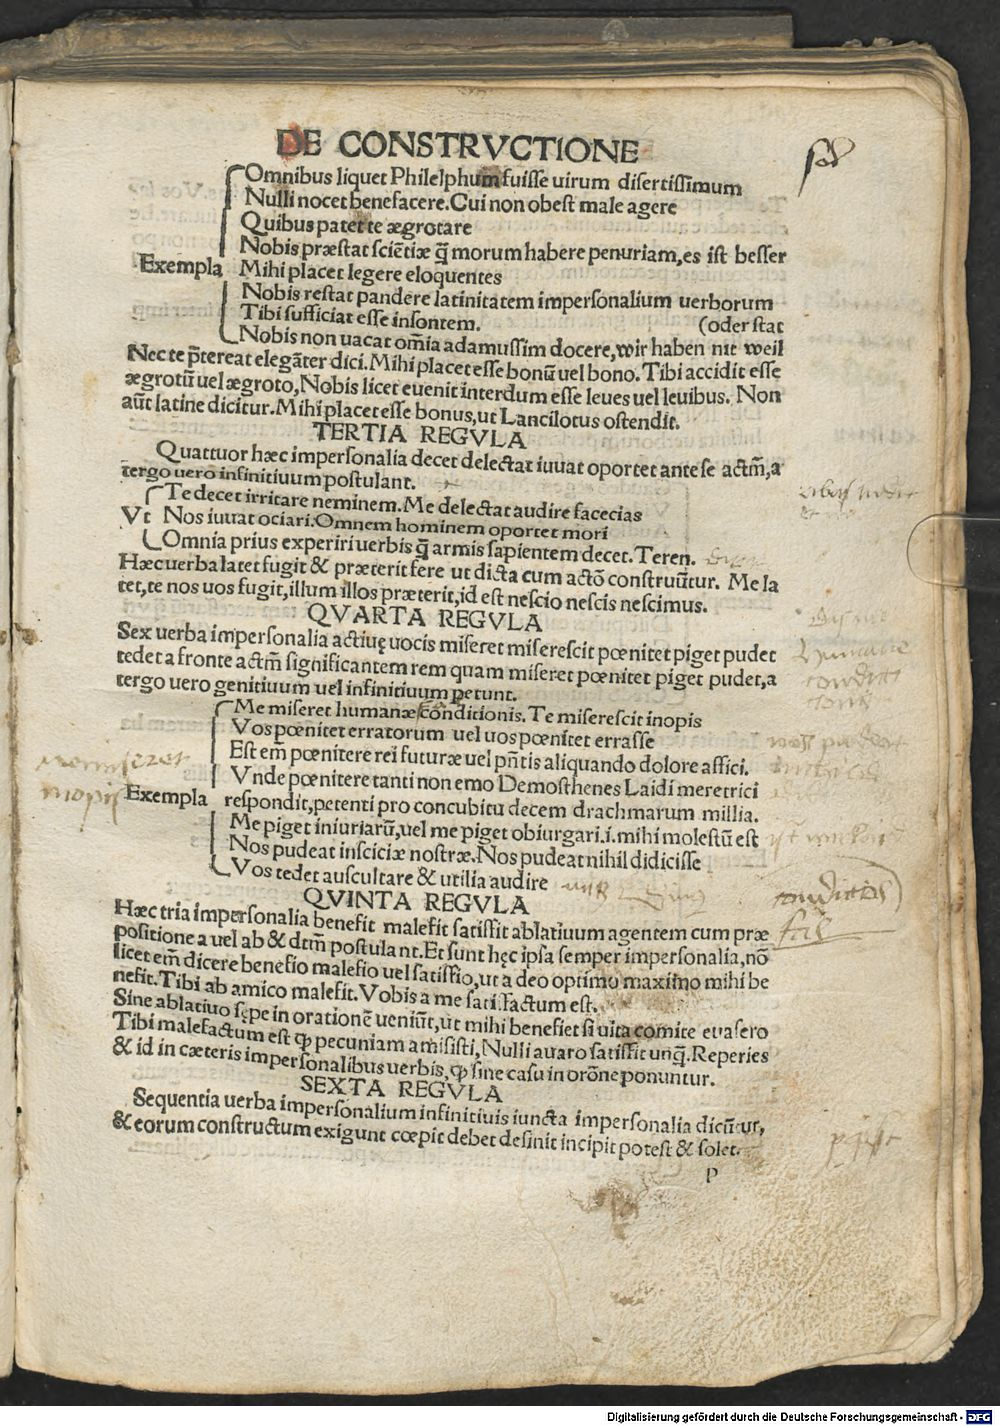 DE CONSTRVCTIONE
Omnibus liquet Philelphum fuisse uirum disertissimum
Nulli nocet benefacere. Cui non obest male agere
Quibus patet te ægrotare
Nobis præstat sciẽtiæ q̃ morum habere penuriam, es ist besser
Exempla Mihi placet legere eloquentes
Nobis restat pandere latinitatem impersonalium uerborum
Tibi sufficiat esse insontem. (oder stat
Nobis non uacat om̃ia adamussim docere, wir haben nit weil
Nec te p̃tereat elegãter dici. Mihi placet esse bonũ uel bono. Tibi accidit esse
ægrotũ uel ægroto, Nobis licet euenit interdum esse leues uel leuibus. Non
aũt latine dicitur. Mihi placet esse bonus, ut Lancilotus ostendit.
TERTIA REGVLA
Quattuor hæc impersonalia decet delectat iuuat oportet ante se actm̃, a
tergo uero infinitiuum postulant.
Te decet irritare neminem. Me delectat audire facecias
Vt Nos iuuat ociari. Omnem hominem oportet mori
Omnia prius experiri uerbis q̃ armis sapientem decet. Teren.
Hæc uerba latet fugit & præterit fere ut dicta cum actõ construũtur. Me la
tet, te nos uos fugit, illum illos præterit, id est nescio nescis nescimus.
QVARTA REGVLA
Sex uerba impersonalia actiuę uocis miseret miserescit pœnitet piget pudet
tedet a fronte actm̃ significantem rem quam miseret pœnitet piget pudet, a
tergo uero genitiuum uel infinitiuum ꝑetunt.
Me miseret humanæ conditionis. Te miserescit inopis
Vos pœnitet erratorum uel uos pœnitet errasse
Est em̃ pœnitere rei futuræ uel pñtis aliquando dolore affici.
Vnde pœnitere tanti non emo Demosthenes Laidi meretrici
Exempla respondit, petenti pro concubitu decem drachmarum millia.
Me piget iniuriarũ, uel me piget obiurgari .i. mihi molestũ est
Nos pudeat insciciæ nostræ. Nos pudeat nihil didicisse
Vos tedet auscultare & utilia audire
QVINTA REGVLA
Hæc tria impersonalia benefit malefit satisfit ablatiuum agentem cum præ
positione a uel ab & dtm̃ postulant. Et sunt hęc ipsa semper impersonalia, nõ
licet em̃ dicere benefio malefio uel satisfio, ut a deo optimo maximo mihi be
nefit. Tibi ab amico malefit. Vobis a me satisfactum est.
Sine ablatiuo sępe in orationẽ ueniũt, ut mihi benefiet si uita comite euasero
Tibi malefactum est ꝙ pecuniam amisisti, Nulli auaro satisfit unq̃. Reperies
& id in cæteris impersonalibus uerbis, ꝙ sine casu in orõne ponuntur.
SEXTA REGVLA
Sequentia uerba impersonalium infinitiuis iuncta impersonalia dicũtur,
& eorum constructum exigunt cœpit debet desinit incipit potest & solet.
p
Digitalisierung gefördert durch die Deutsche Forschungsgemeinschaft - DFG